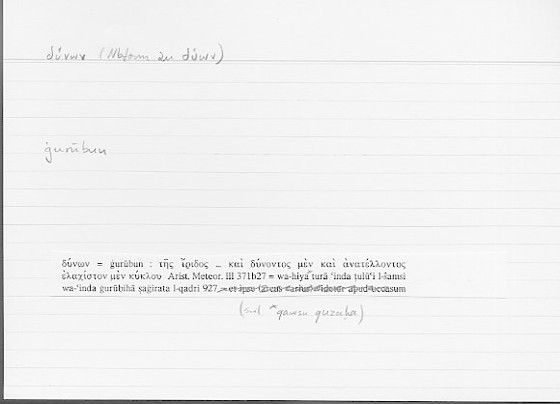 δύνων (Nbform zu δύων)
ġurūbun
δύνων = ġurūbun : τῆς ἴριδος ... καὶ δύνοντος μὲν καὶ ἀνατέλλοντος
ἐλαχίστου μὲν κύκλου Arist. Meteor. III 371b27 = wa-hiya turā ʿinda ṭulūʿi l-šamsi
wa-ʿinda ġurūbihā ṣaġīrata l-qadri 927 = et ipse videtur apud occasum
qawsu quzaḥa)